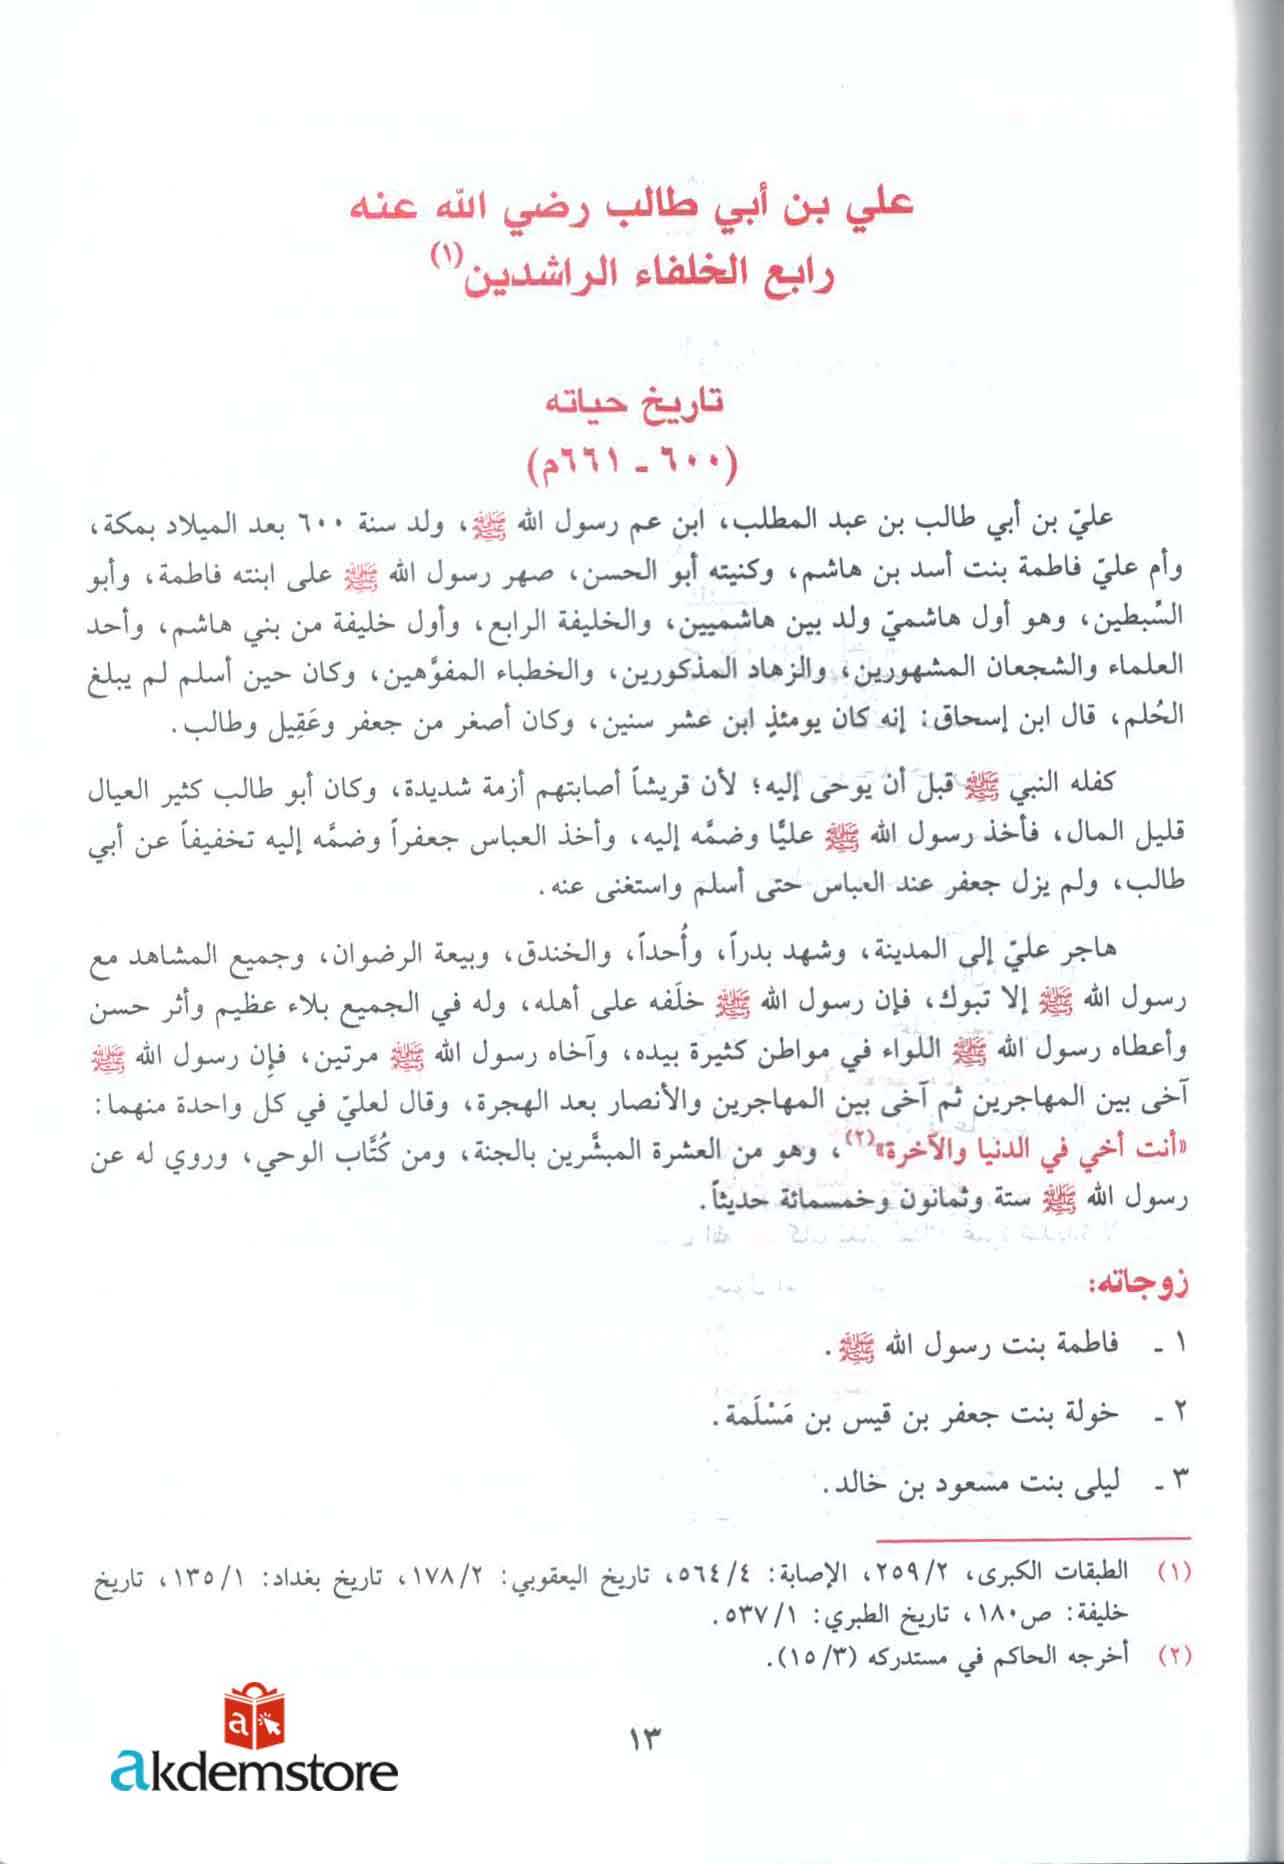 علي بن أبي طالب رضي الله عنه
رابع الخلفاء الراشدين(١)
تاريخ حياته
(٦٠٠ ـ ٦٦١م)
عليّ بن أبي طالب بن عبد المطلب، ابن عم رسول الله ﷺ، ولد سنة ٦٠٠ بعد الميلاد بمكة،
وأم عليّ فاطمة بنت أسد بن هاشم، وكنيته أبو الحسن، صهر رسول الله ﷺ على ابنته فاطمة، وأبو
السِّبطين، وهو أول هاشميّ ولد بين هاشميين، والخليفة الرابع، وأول خليفة من بني هاشم، وأحد
العلماء والشجعان المشهورين، والزهاد المذكورين، والخطباء المفوَّهين، وكان حين أسلم لم يبلغ
الحُلم، قال ابن إسحاق: إنه كان يومئذٍ ابن عشر سنين، وكان أصغر من جعفر وعَقِيل وطالب.
كفله النبي ﷺ قبل أن يوحى إليه؛ لأن قريشاً أصابتهم أزمة شديدة، وكان أبو طالب كثير العيال
قليل المال، فأخذ رسول الله ﷺ عليًّا وضمَّه إليه، وأخذ العباس جعفراً وضمَّه إليه تخفيفاً عن أبي
طالب، ولم يزل جعفر عند العباس حتى أسلم واستغنى عنه.
هاجر عليّ إلى المدينة، وشهد بدراً، وأُحداً، والخندق، وبيعة الرضوان، وجميع المشاهد مع
رسول الله ﷺ إلا تبوك، فإن رسول الله ﷺ خلَفه على أهله، وله في الجميع بلاء عظيم وأثر حسن
وأعطاه رسول الله ﷺ اللواء في مواطن كثيرة بيده، وآخاه رسول الله ﷺ مرتين، فإن رسول الله ﷺ
آخى بين المهاجرين ثم آخى بين المهاجرين والأنصار بعد الهجرة، وقال لعليّ في كل واحدة منهما:
«أنت أخي في الدنيا والآخرة»(٢)، وهو من العشرة المبشَّرين بالجنة، ومن كُتَّاب الوحي، وروي له عن
رسول الله ﷺ ستة وثمانون وخمسمائة حديثاً.
زوجاته:
١ ـ فاطمة بنت رسول الله ﷺ.
٢ ـ خولة بنت جعفر بن قيس بن مَسْلَمة.
٣ ـ ليلى بنت مسعود بن خالد.
(١) الطبقات الكبرى، ٢/ ٢٥٩، الإصابة: ٤/ ٥٦٤، تاريخ اليعقوبي: ٢/ ١٧٨، تاريخ بغداد: ١/ ١٣٥، تاريخ
خليفة: ص١٨٠، تاريخ الطبري: ١/ ٥٣٧.
(٢) أخرجه الحاكم في مستدركه (٣/ ١٥).
١٣
a
akdemstore